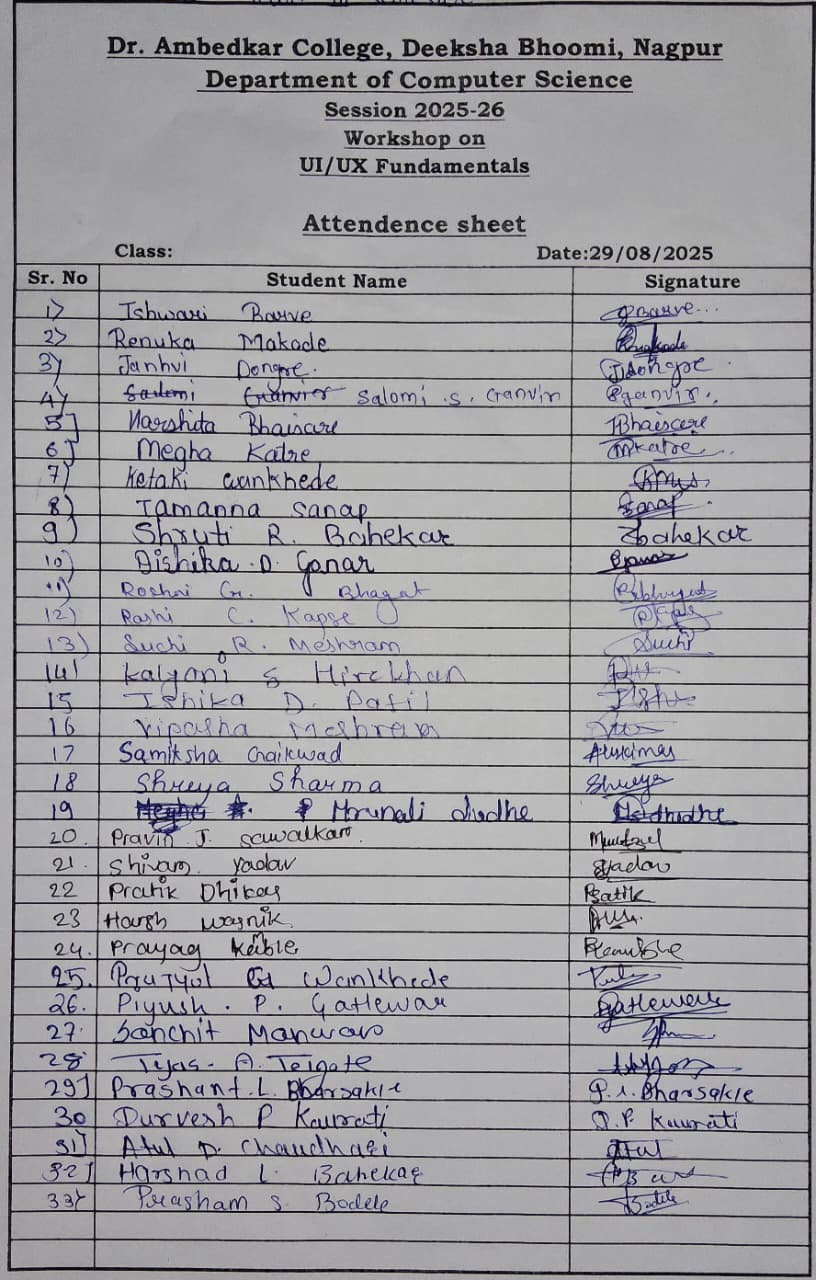 Dr. Ambedkar College, Deeksha Bhoomi, Nagpur
Department of Computer Science
Session 2025-26
Workshop on
UI/UX Fundamentals
Attendence sheet
Class: Date:29/08/2025
Sr. No Student Name Signature
1) Ishwari Barve Barve
2) Renuka Makode
3) Janhvi Dongre. Dongre
4) Salomi .S. Ganvir Sganvir
5] Harshita Bhaisare Bhaisare
6] Megha Katre Mkatre
7) Ketaki wankhede
8) Tamanna Sanap Sanap
9) Shruti R. Bahekar Bahekar
10) Dishika .D. Ganar
11) Roshni G. Bhagat
12) Rashi C. Kapse
13) Suchi R. Meshram Suchi
14) Kalyani S Hirekhan
15 Ishika D. Patil
16 Vipasha Meshram
17 Samiksha Gaikwad
18 Shreya Sharma Shreya
19 Mrunali dudhe
20. Pravin J. Sawalkar
21. Shivam Yadav Yadav
22 Pratik Dhikar Pratik
23 Harsh wasnik
24. Prayag Kamble
25. Prajyol G Wankhede
26. Piyush . P. Gattewar Gattewar
27. Sanchit Manwar
28 Tejas. A. Teigate
29] Prashant. L. Bharsakle P. L. Bharsakle
30 Durvesh P Kaurati D. P. Kaurati
31] Atul D. Chaudhari Atul
32] Harshad L. Bahekar
33) Prasham S. Bodele Bodele